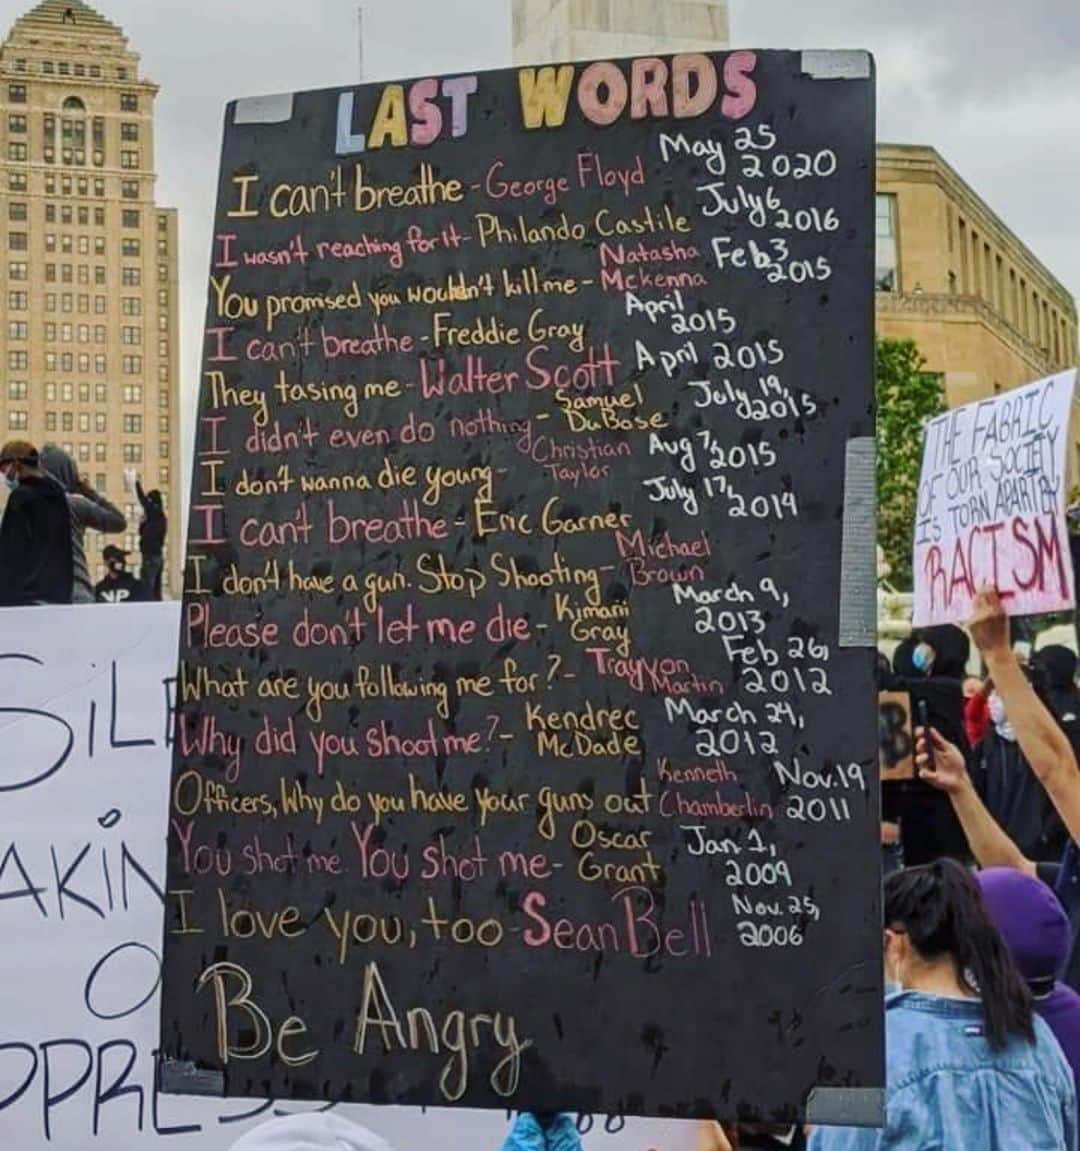 LAST WORDS
I can't breathe - George Floyd May 25 2020
I wasn't reaching for it - Philando Castile July 6 2016
You promised you wouldn't kill me - Natasha Mckenna Feb 3 2015
I can't breathe - Freddie Gray April 2015
They tasing me - Walter Scott April 2015
I didn't even do nothing - Samuel DuBose July 19, 2015
I don't wanna die young - Christian Taylor Aug 7, 2015
I can't breathe - Eric Garner July 17, 2014
I don't have a gun. Stop Shooting - Michael Brown
Please don't let me die - Kimani Gray March 9, 2013
What are you following me for? - Trayvon Martin Feb 26, 2012
Why did you shoot me? - Kendrec McDade March 24, 2012
Officers, Why do you have your guns out Kenneth Chamberlin Nov. 19 2011
You shot me. You shot me - Oscar Grant Jan 1, 2009
I love you, too - Sean Bell Nov. 25, 2006
Be Angry
THE FABRIC
OF OUR SOCIETY
IS TORN APART BY
RACISM
SiL
AKIN
O
PPRESS